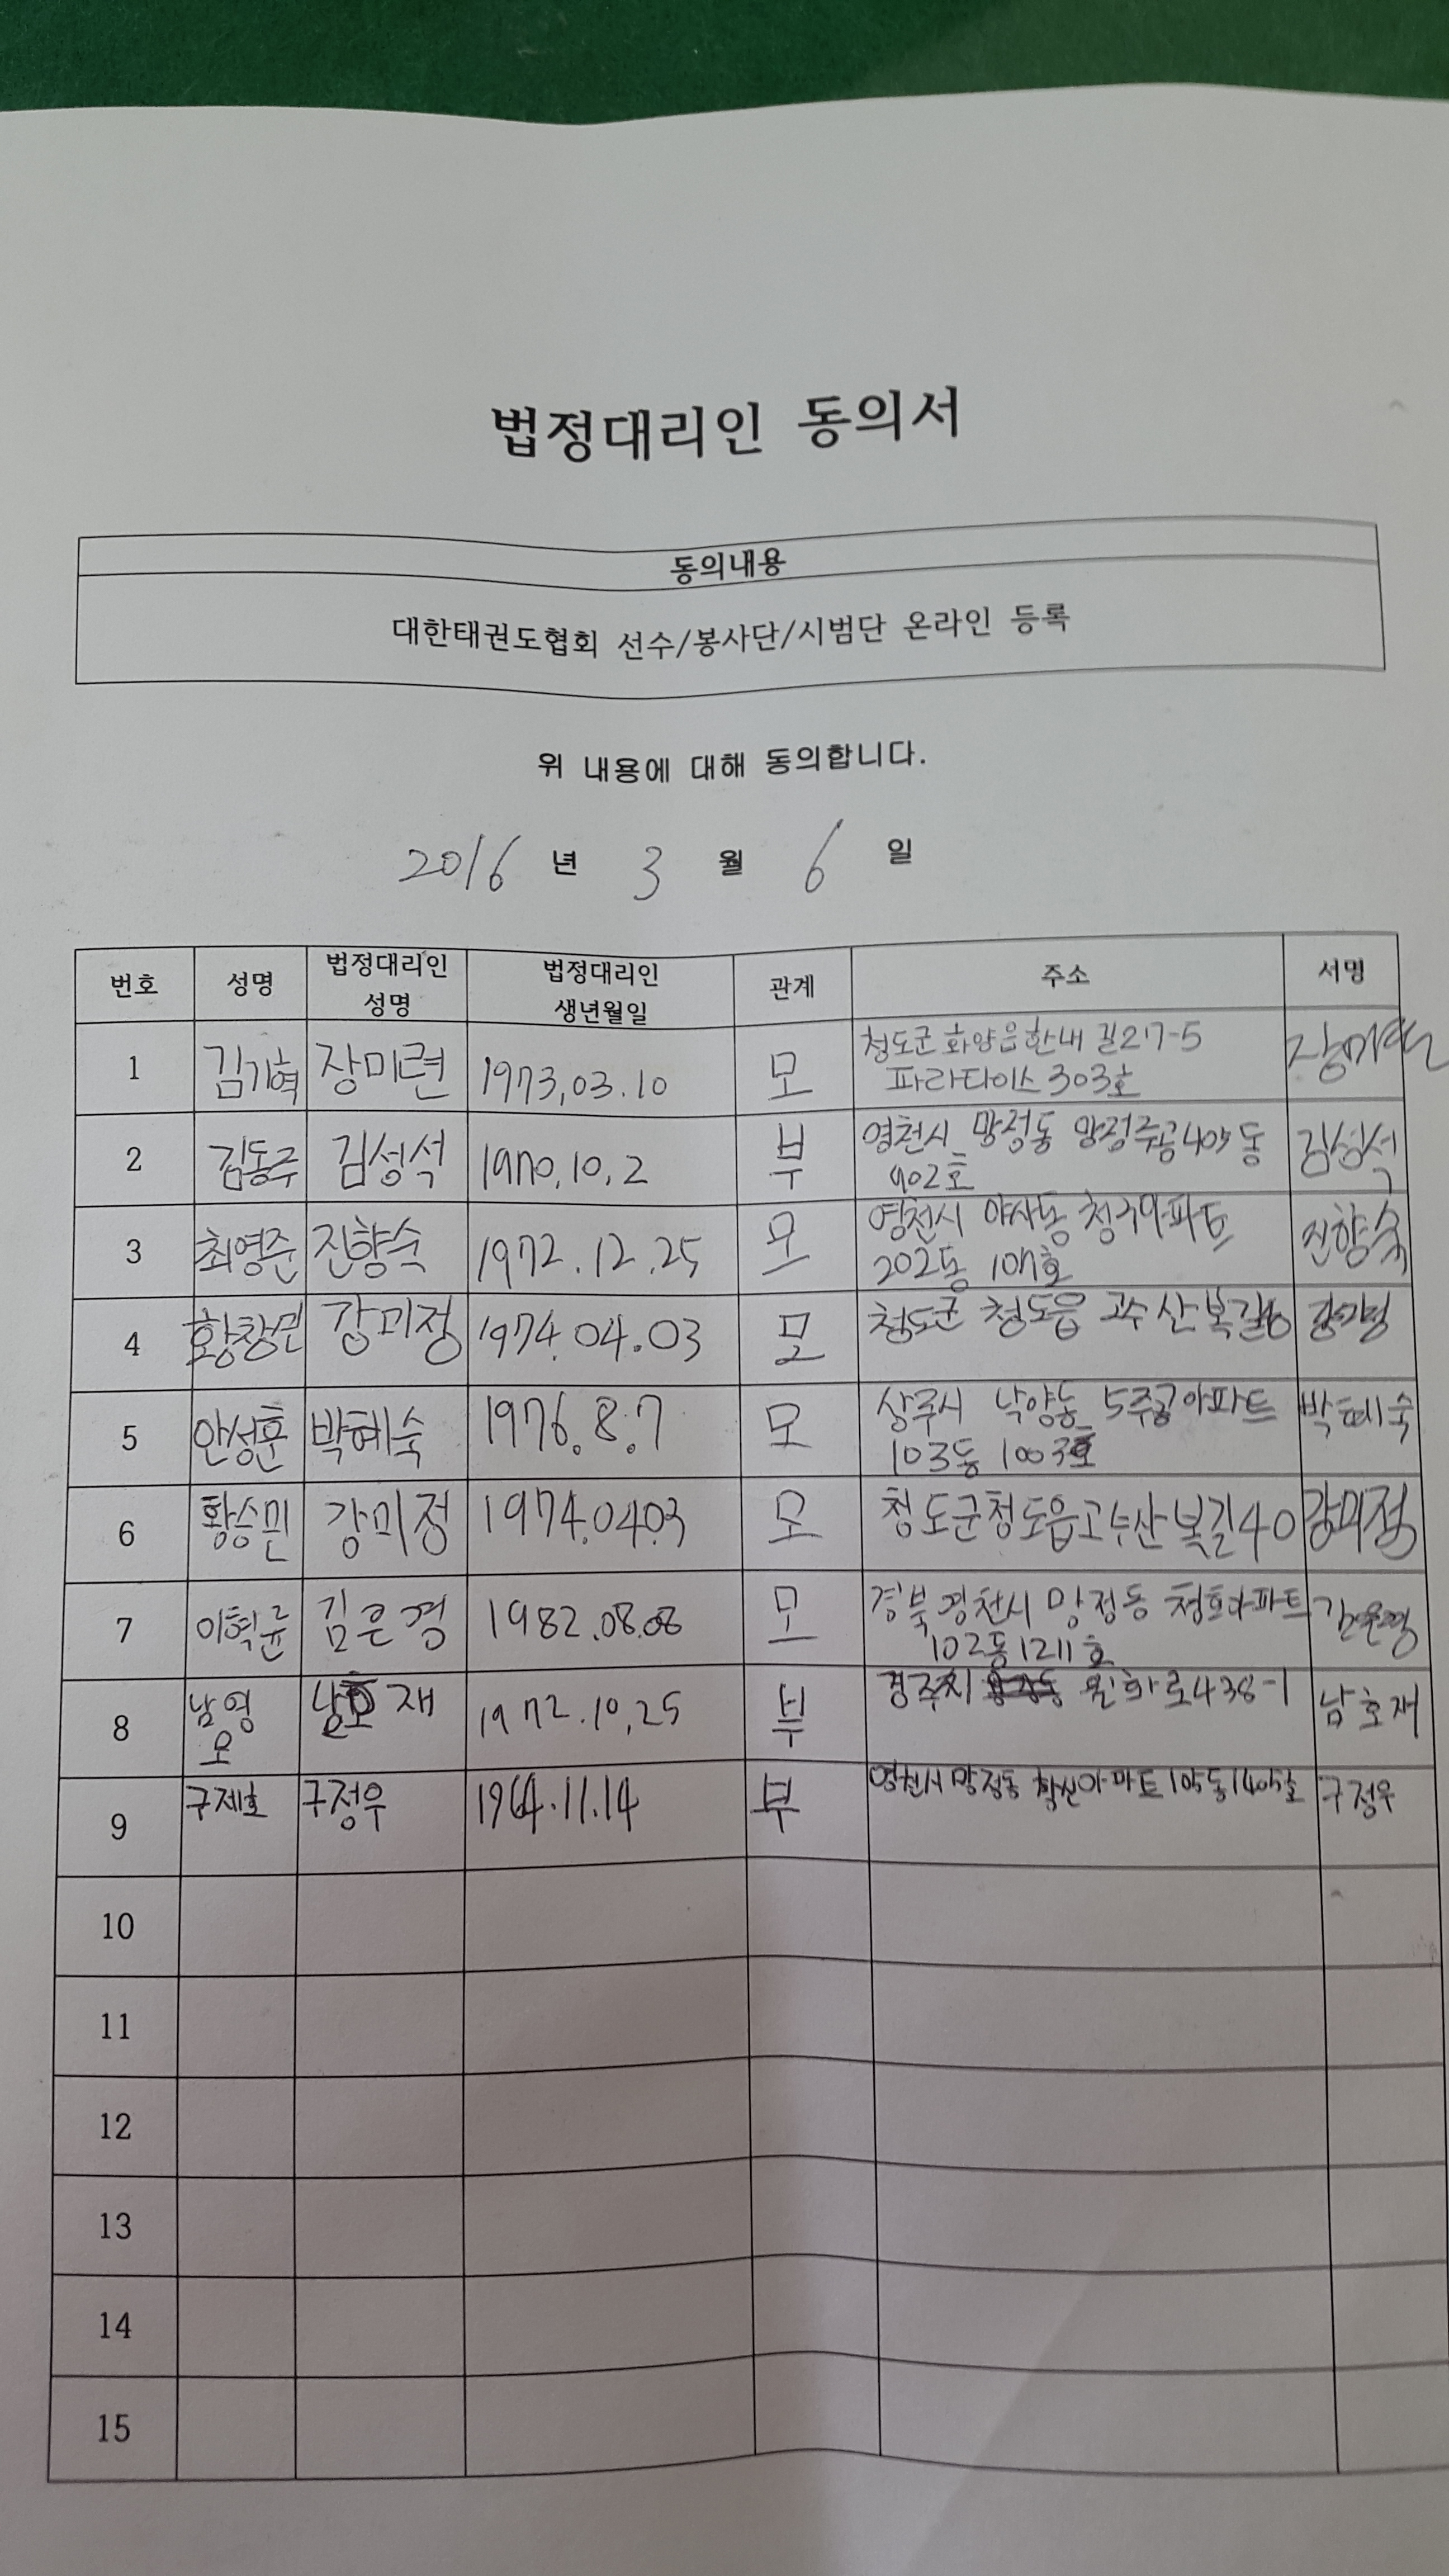 법정대리인 동의서
동의내용
대한태권도협회 선수/봉사단/시범단 온라인 등록
위 내용에 대해 동의합니다.
2016 년 3 월 6 일
번호 성명 법정대리인 성명 법정대리인 생년월일 관계 주소 서명
1 김기혁 장미련 1973,03.10 모 청도군 화양읍 한내길217-5
파라다이스 303호
2 김동주 김성석 1970.10.2 부 영천시 망정동 망정주공405동 김성석
902호
3 최영준 진향숙 1972.12.25 모 영천시 야사동 청구아파트 진향숙
202동 107호
4 황창민 강미정 1974.04.03 모 청도군 청도읍 고수산복길 강미정
5 안성훈 박혜숙 1976.8.7 모 상주시 낙양동 5주공아파트 박혜숙
103동 1003호
6 황승민 강미정 1974.04.03 모 청도군청도읍고수산복길40 강미정
7 이혁균 김은경 1982.08.08 모 경북 영천시 망정동 청호아파트 김은경
102동1211호
8 남영오 남호재 1972.10.25 부 경주시 원화로438-1 남호재
9 구제호 구정우 1964.11.14 부 영천시 망정동 아파트 105동1405호 구정우
10
11
12
13
14
15